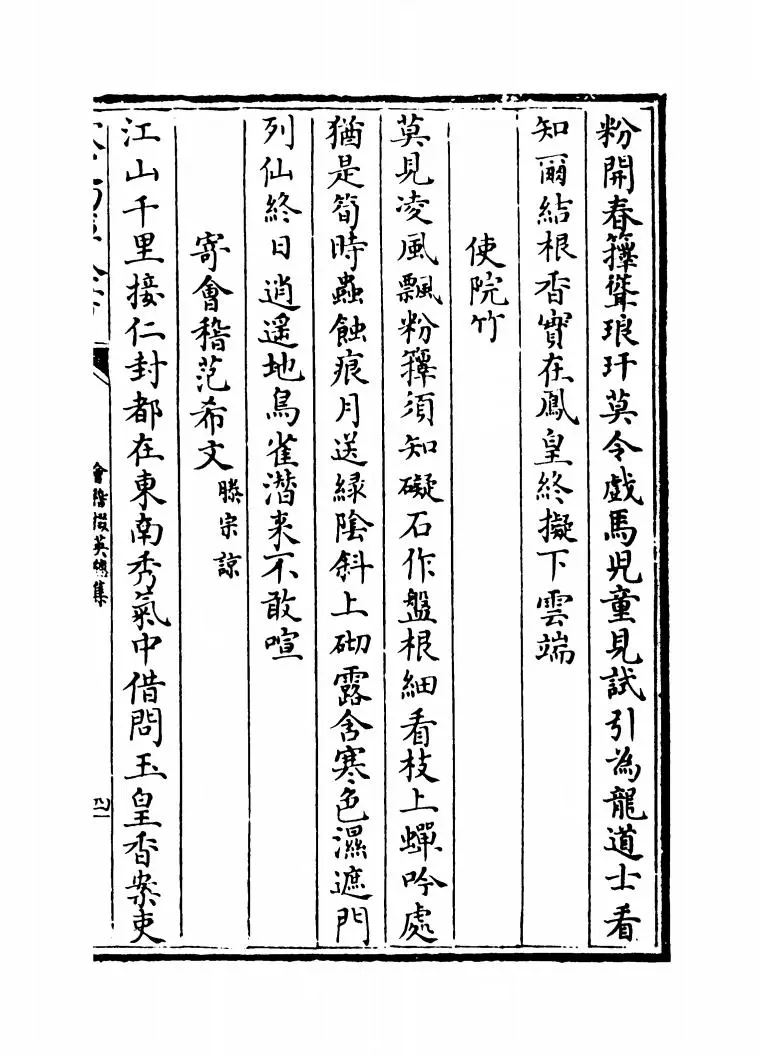 粉開春籜聳琅玕莫令戲馬兒童見試引為龍道士看
知爾結根香實在鳳皇終擬下雲端
使院竹
莫見凌風飄粉籜須知礙石作盤根細看枝上蟬吟處
猶是筍時蟲蝕痕月送綠陰斜上砌露含寒色濕遮門
列仙終日逍遥地鳥雀潛来不敢喧
寄會稽范希文 滕宗諒
江山千里接仁封都在東南秀氣中借問玉皇香案吏
會稽掇英總集